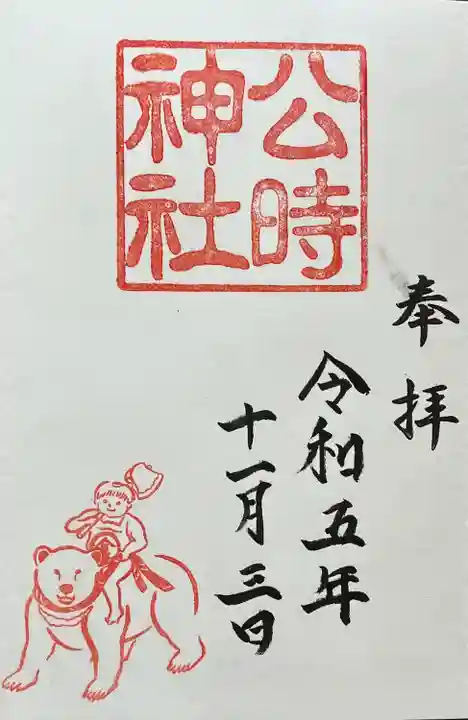 公時
神社
奉拝
令和五年
十一月三日